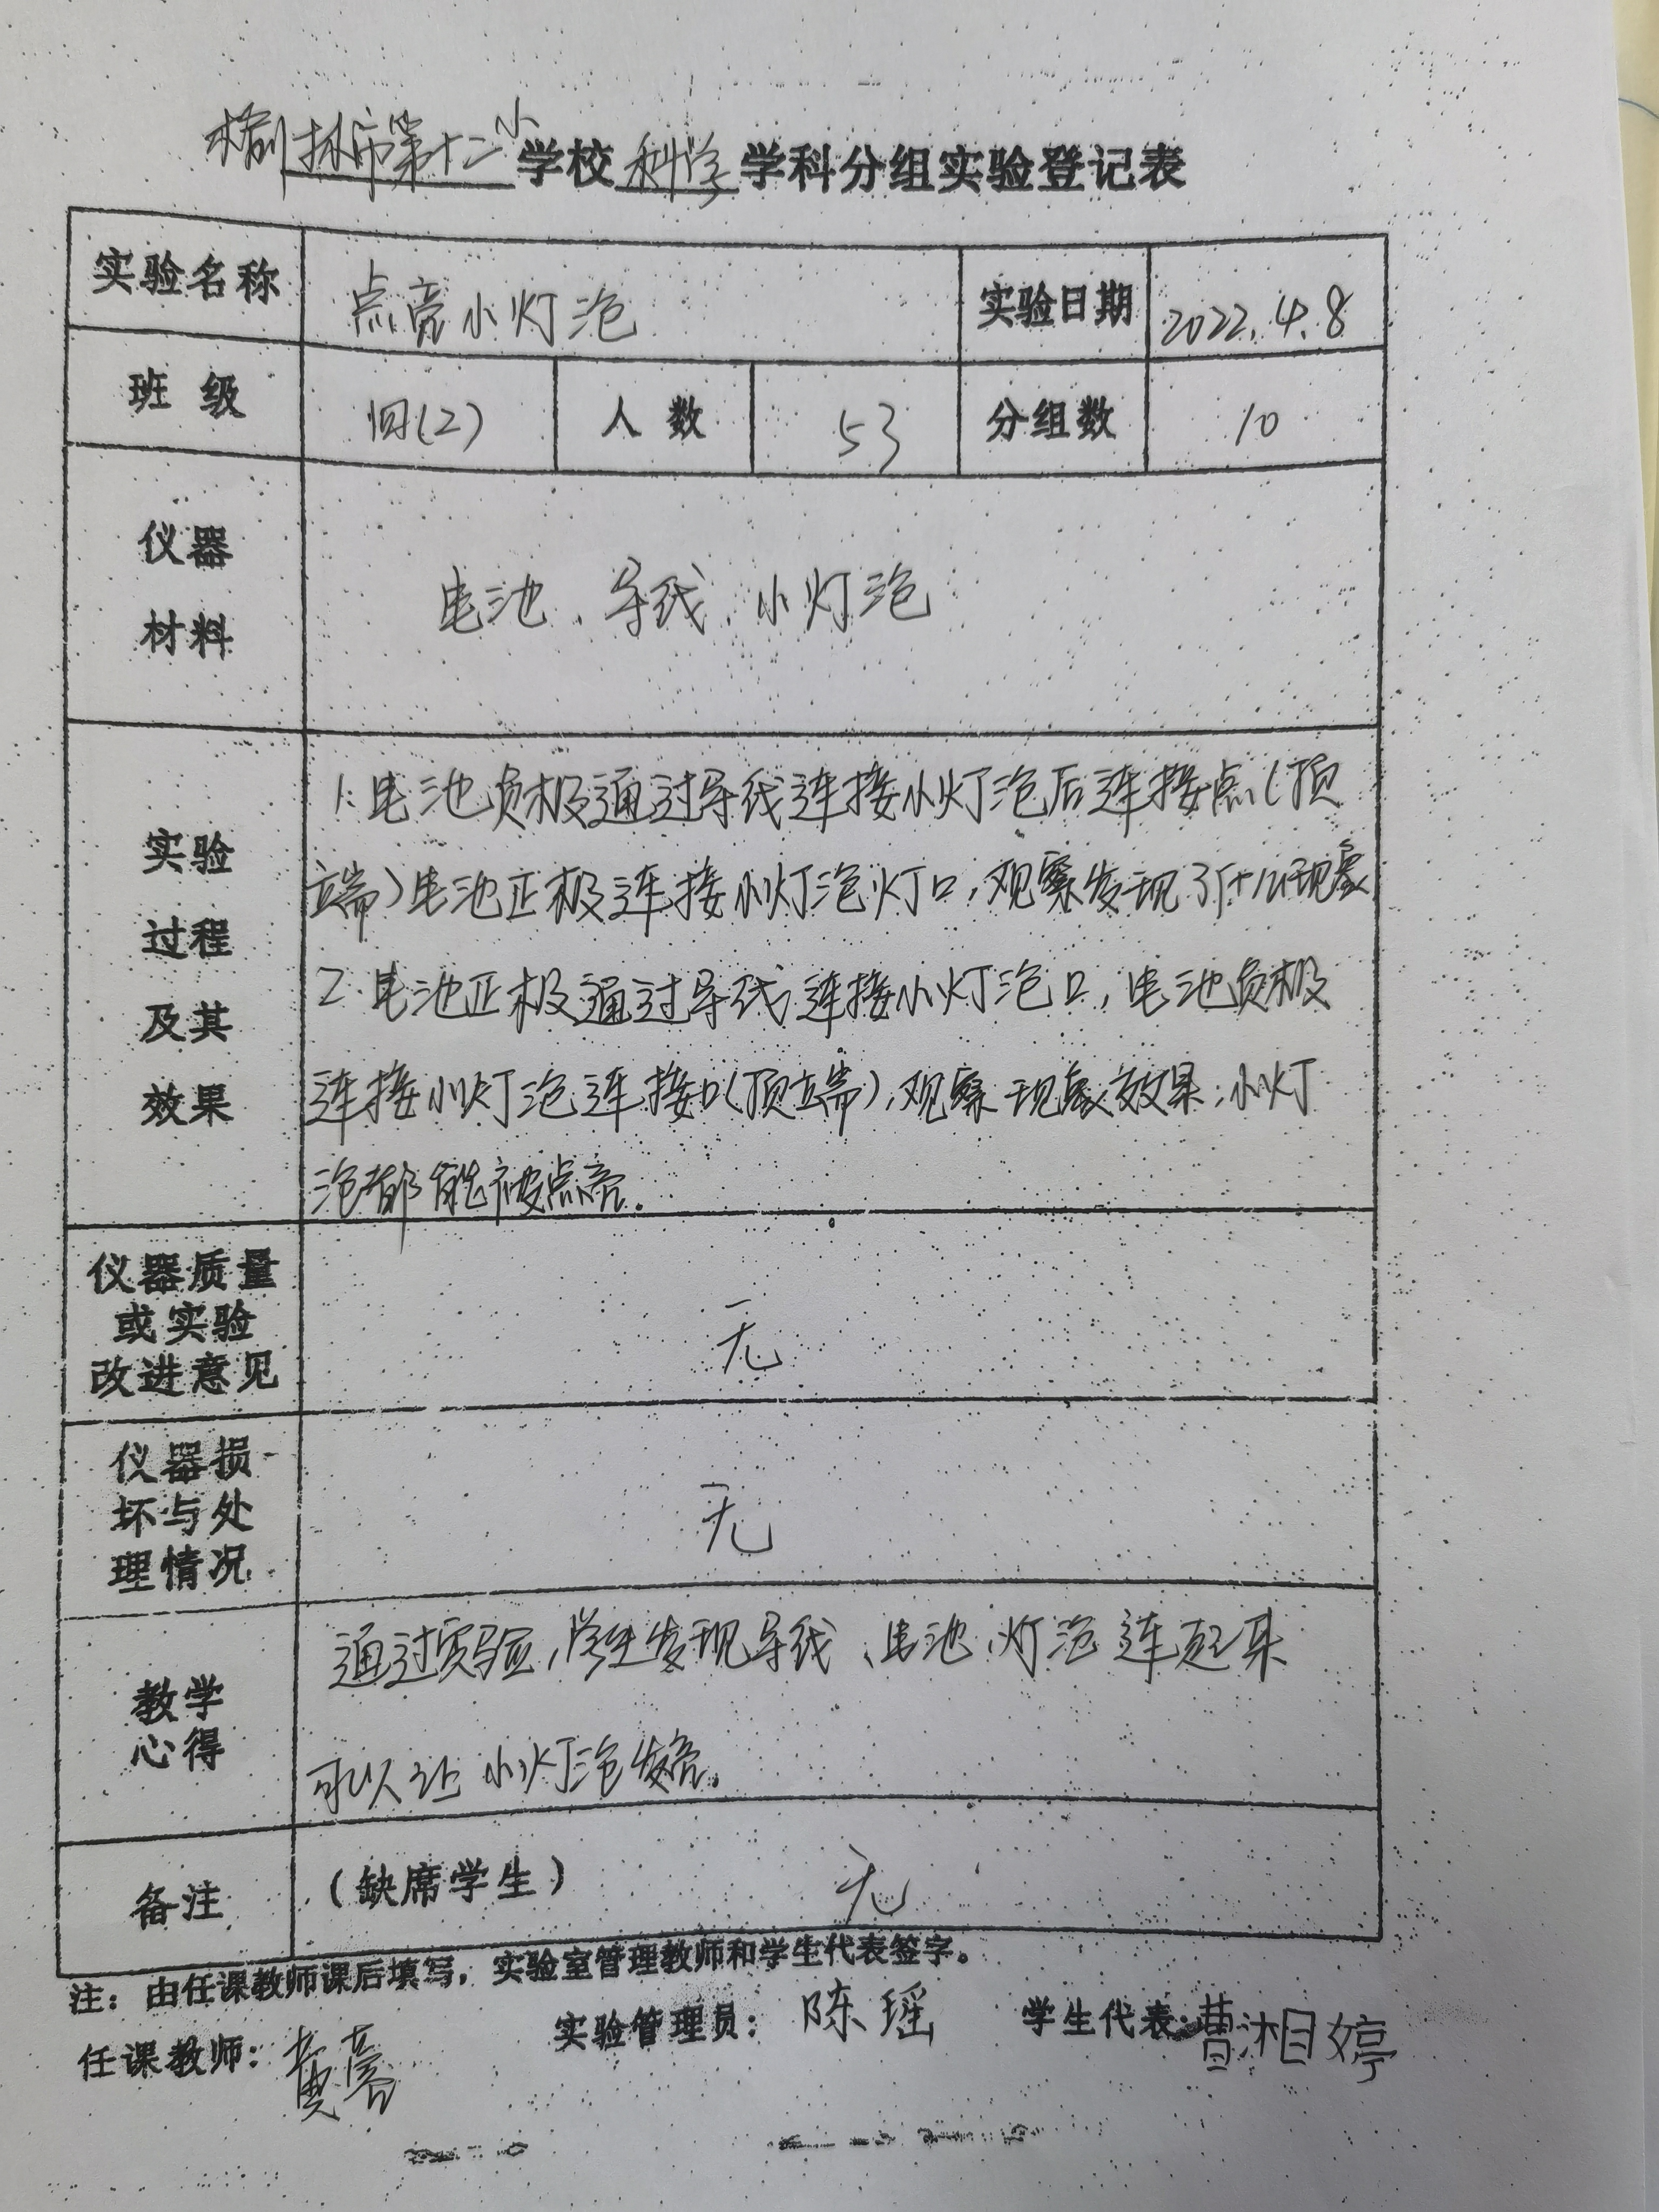 榆林市第十二小学校科学学科分组实验登记表
实验名称 点亮小灯泡 实验日期 2022.4.8
班级 四(2) 人数 53 分组数 10
仪器
材料
电池、导线、小灯泡
实验
过程
及其
效果
1.电池负极通过导线连接小灯泡后连接点(顶
端)电池正极连接小灯泡灯口,观察发现 现象
2.电池正极通过导线连接小灯泡口,电池负极
连接小灯泡连接口(顶端),观察现象效果:小灯
泡都能被点亮。
仪器质量
或实验
改进意见
无
仪器损
坏与处
理情况
无
教学
心得
通过实验,学生发现导线、电池、灯泡连起来
可以让小灯泡发亮。
备注 (缺席学生) 无
注:由任课教师课后填写,实验室管理教师和学生代表签字。
任课教师: 黄亮 实验管理员: 陈瑶 学生代表: 曹湘婷